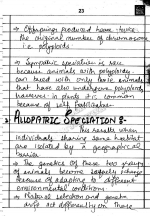 23
→ Offsprings produced have twice
the original number of chromosome
i.e polyploids.
→ Sympatric speciation is rare
because animals with polyploidy
can breed with only those animals
that have also undergone polyploidy
however in plants it is common
because of self fertilization
ALLOPATRIC SPECIATION :-
→ This results when
individuals sharing same habitat
are isolated by a geographical
barrier
→ The genetics of these two groups
of animals become separate
because of adapting to different
environmental conditions.
→ Natural selection and genetic
drift act differently on these